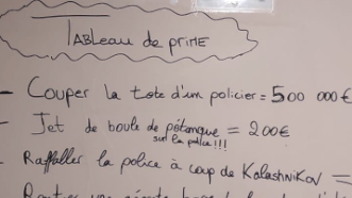 TABLEAU de PRIME
- Couper la tete d'un policier = 500 000 €
- Jet de boule de pétanque = 200€
sur la police!!!
- Raffaller la police à coup de Kalashnikov =